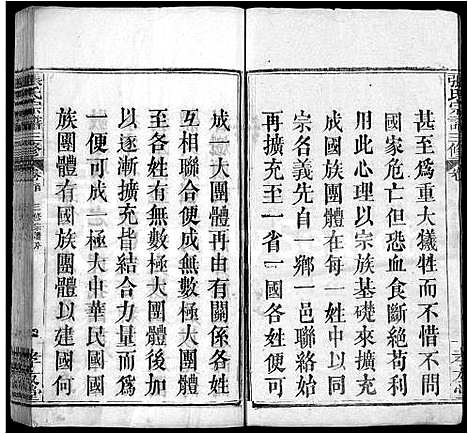 張氏宗譜三修
甚至爲重大犧牲而不惜不問
國家危亡但恐血食斷絕苟利
用此心理以宗族基礎來擴充
成國族團體在每一姓中以同
宗名義先自一鄉一邑聯絡始
再擴充至一省一國各姓便可
成一大團體再由有關係各姓
互相聯合使成無數極大團體
至各姓有無數極大團體又可
以逐漸擴充皆結合力量而爲
一便可成一極大中華民國國
族團體有國族團體以建國何
張氏宗譜三修